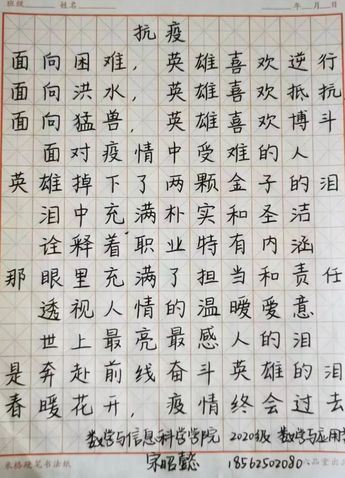 班级 姓名 年 月 日
抗疫
面向困难，英雄喜欢逆行
面向洪水，英雄喜欢抵抗
面向猛兽，英雄喜欢博斗
面对疫情中受难的人
英雄掉下了两颗金子的泪
泪中充满朴实和圣洁
诠释着职业特有内涵
那眼里充满了担当和责任
透视人情的温暖爱意
世上最亮最感人的泪
是奔赴前线奋斗英雄的泪
春暖花开，疫情终会过去
数学与信息科学学院 2020级 数学与应用
宋昭懿 18562502080
米格硬笔书法纸 六品堂出